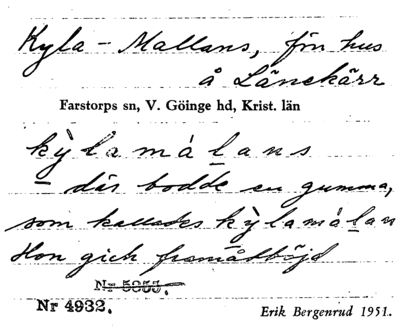 Kyla-Mallans, frn hus
å Länekärr
Farstorps sn, V. Göinge hd, Krist. län
kỳlamálans
– där bodde en gumma,
som kallades kỳlamálan
Hon gick framåtböjd
Nr 5053.
Nr 4932.
Erik Bergenrud 1951.